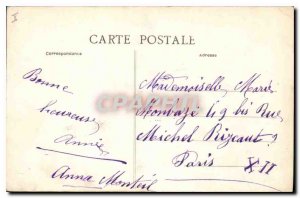 I
CARTE POSTALE
Correspondance
Adresse
Bonne
heureuse
année
Anna Montril
Mademoiselle Marie
Monvazé 49 bis Rue
Michel Bizeaut?
Paris
XII